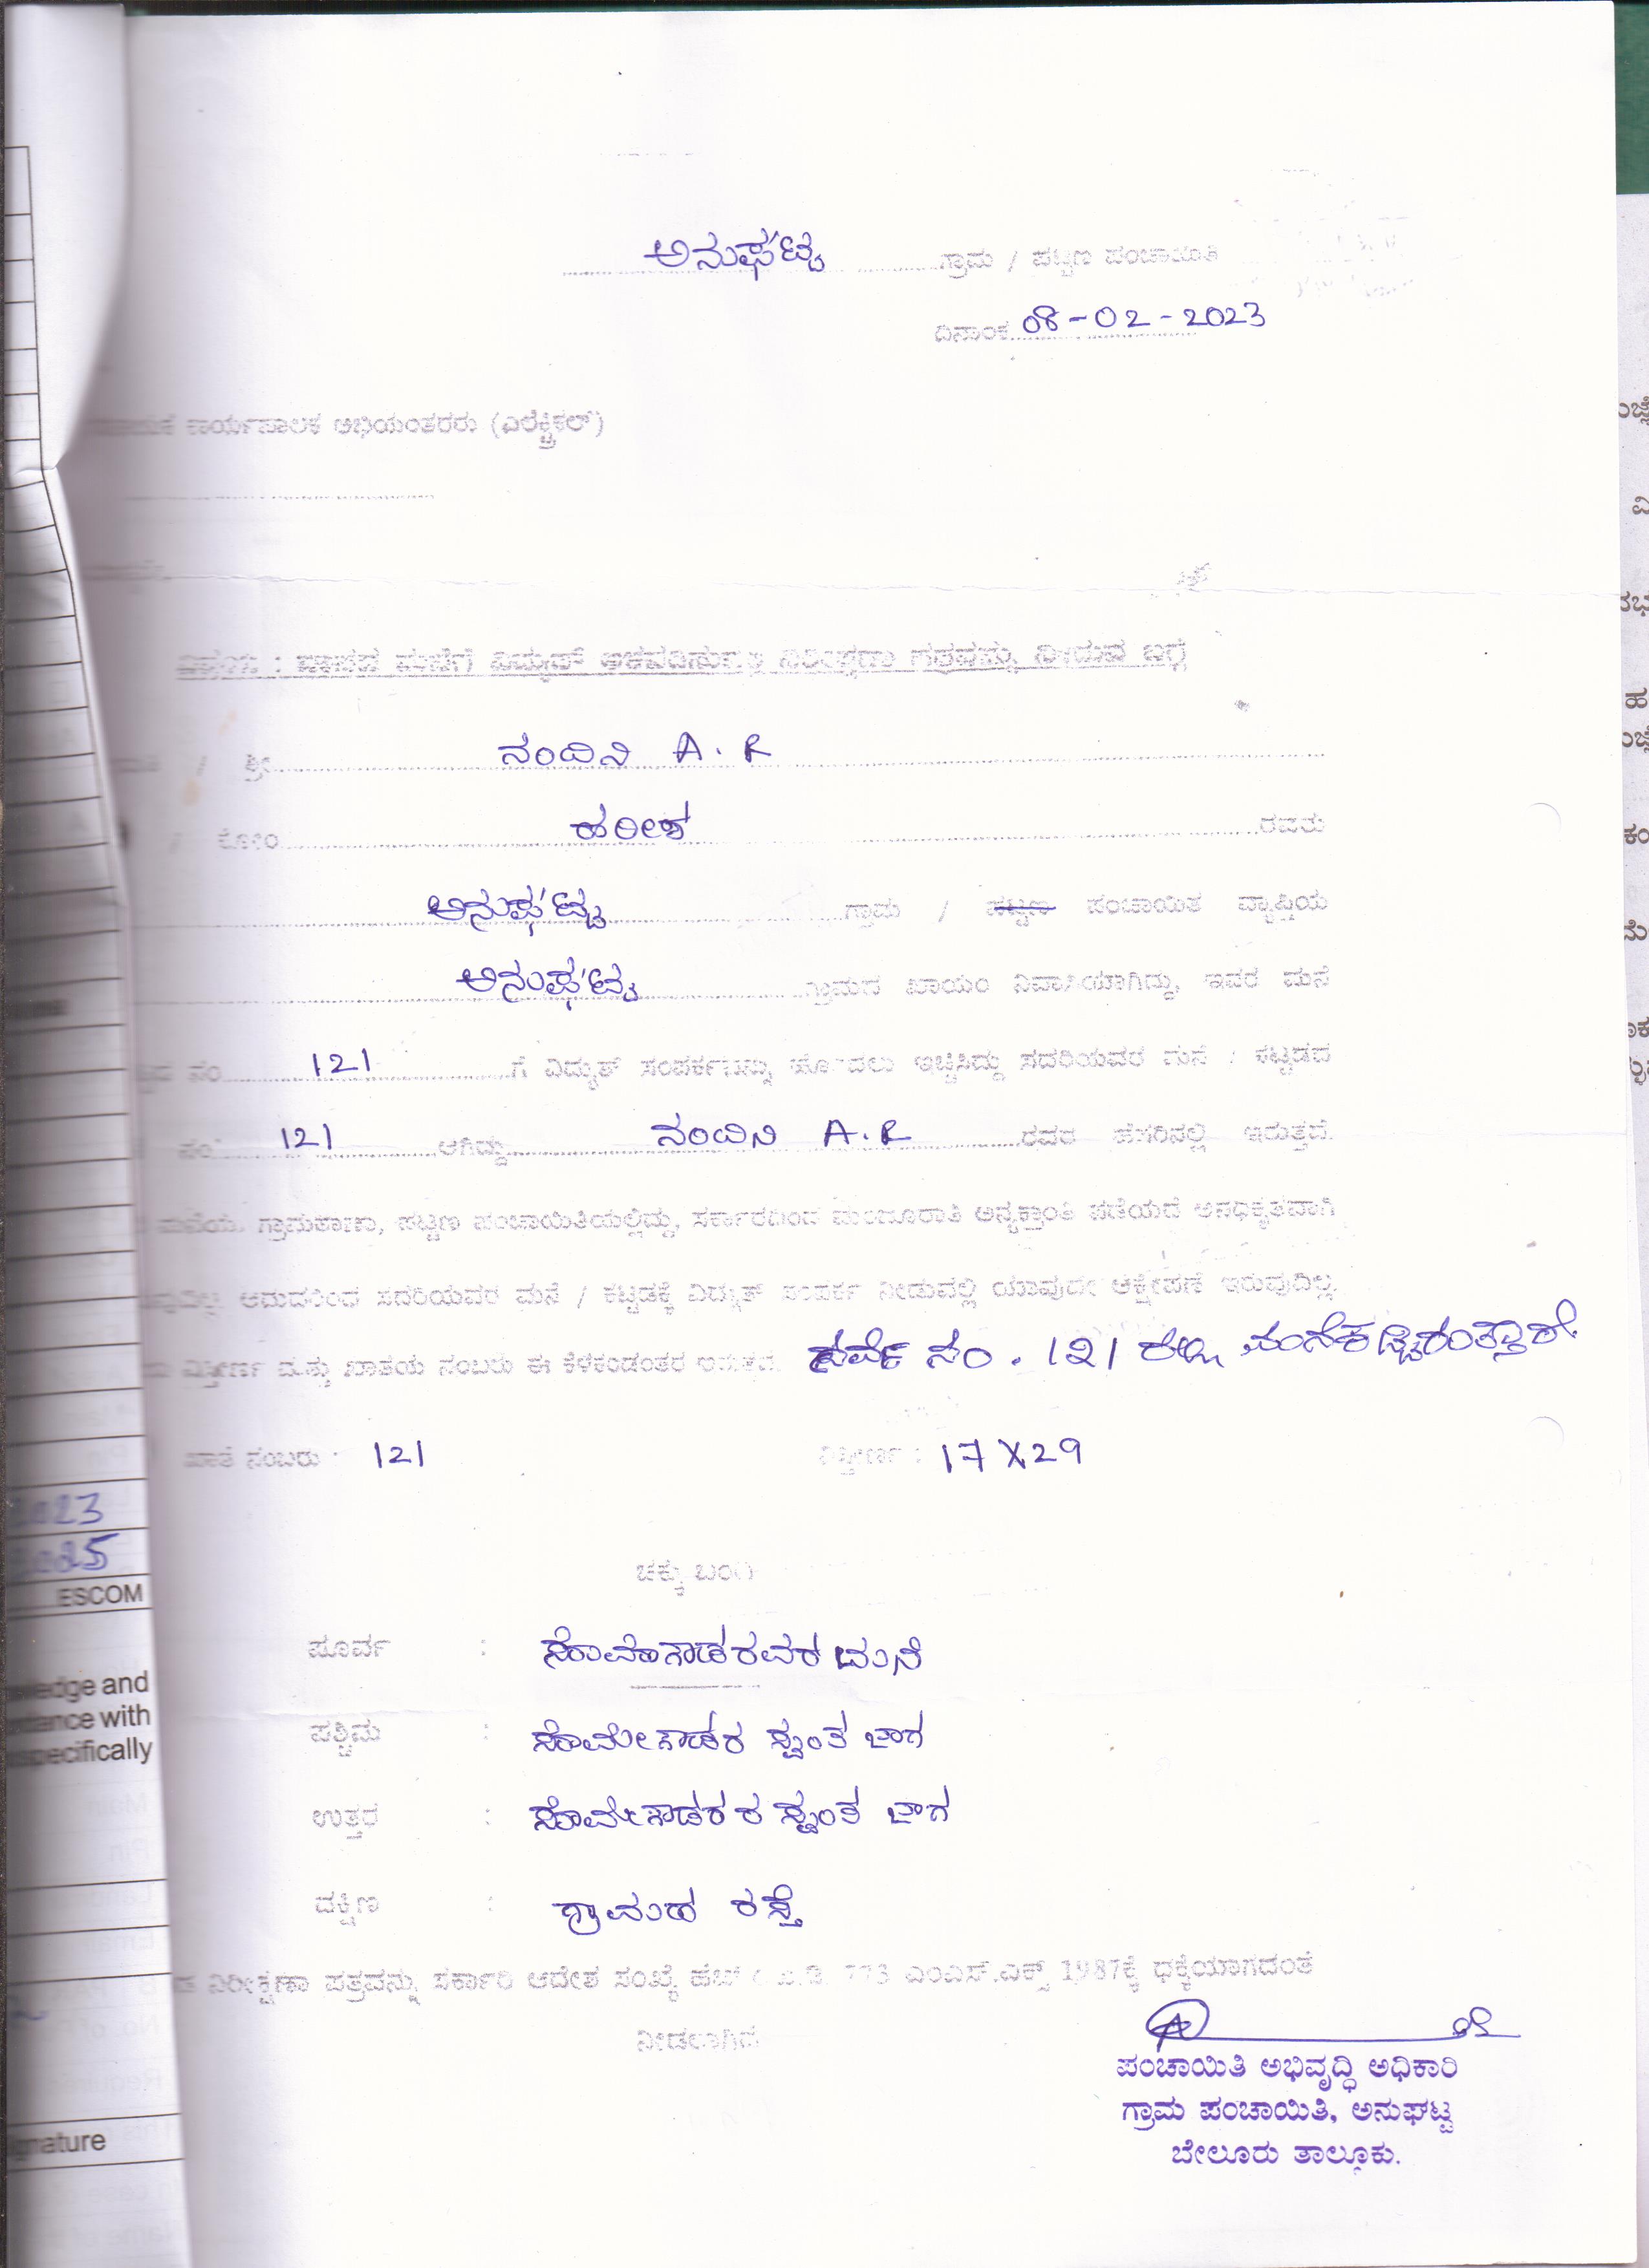 ಅನುಘಟ್ಟ ಗ್ರಾಮ / ಪಟ್ಟಣ ಪಂಚಾಯಿತಿ
ದಿನಾಂಕ 08-02-2023
ಕಾರ್ಯಪಾಲಕ ಅಭಿಯಂತರರು (ಎಲೆಕ್ಟ್ರಿಕಲ್)
ಶ್ರೀ ನಂದಿನಿ A.R
/ ಕೋಂ ಹರೀಶ್ ರವರು
ಅನುಘಟ್ಟ ಗ್ರಾಮ / ಪಟ್ಟಣ ಪಂಚಾಯಿತ ವ್ಯಾಪ್ತಿಯ
ಅನುಘಟ್ಟ ಗ್ರಾಮದ ಖಾಯಂ ನಿವಾಸಿಯಾಗಿದ್ದು, ಇವರ ಮನೆ
ನಂ 121 ಗೆ ವಿದ್ಯುತ್ ಸಂಪರ್ಕವನ್ನು ಹೊಂದಲು ಇಚ್ಛಿಸಿದ್ದು ಸದರಿಯವರ ಮನೆ / ಕಟ್ಟಡದ
ನಂ 121 ಆಗಿದ್ದು ನಂದಿನಿ A.R ರವರ ಹೆಸರಿನಲ್ಲಿ ಇರುತ್ತದೆ.
ಮನೆಯು ಗ್ರಾಮಠಾಣಾ, ಪಟ್ಟಣ ಪಂಚಾಯಿತಿಯಲ್ಲಿದ್ದು, ಸರ್ಕಾರದಿಂದ ಮಂಜೂರಾತಿ ಅನ್ಯಕ್ರಾಂತಿ ಪಡೆಯದೆ ಅನಧಿಕೃತವಾಗಿ
ಆದುದರಿಂದ ಸದರಿಯವರ ಮನೆ / ಕಟ್ಟಡಕ್ಕೆ ವಿದ್ಯುತ್ ಸಂಪರ್ಕ ನೀಡುವಲ್ಲಿ ಯಾವುದೇ ಆಕ್ಷೇಪಣೆ ಇರುವುದಿಲ್ಲ.
ವಿಸ್ತೀರ್ಣ ಮತ್ತು ಖಾತೆಯ ನಂಬರು ಈ ಕೆಳಕಂಡಂತರ ಇರುತ್ತದೆ. ಸರ್ವೆ ನಂ. 121 ರಲ್ಲಿ
ಖಾತೆ ನಂಬರು : 121 ವಿಸ್ತೀರ್ಣ : 17X29
ಚಕ್ಕು ಬಂದಿ
ಪೂರ್ವ : ಸೋಮೇಗೌಡರವರ ಮನೆ
ಪಶ್ಚಿಮ : ಸೋಮೇಗೌಡರ ಸ್ವಂತ ಜಾಗ
ಉತ್ತರ : ಸೋಮೇಗೌಡರ ರ ಸ್ವಂತ ಜಾಗ
ದಕ್ಷಿಣ : ಗ್ರಾಮದ ರಸ್ತೆ
ನಿರೀಕ್ಷಣಾ ಪತ್ರವನ್ನು ಸರ್ಕಾರಿ ಆದೇಶ ಸಂಖ್ಯೆ 773 ಎಂಎಸ್.ಎಕ್ಸ್ 1987ಕ್ಕೆ ಧಕ್ಕೆಯಾಗದಂತೆ
ನೀಡಲಾಗಿದೆ
ಪಂಚಾಯಿತಿ ಅಭಿವೃದ್ಧಿ ಅಧಿಕಾರಿ
ಗ್ರಾಮ ಪಂಚಾಯಿತಿ, ಅನುಘಟ್ಟ
ಬೇಲೂರು ತಾಲ್ಲೂಕು.
2023
2025
ESCOM
and
with
specifically